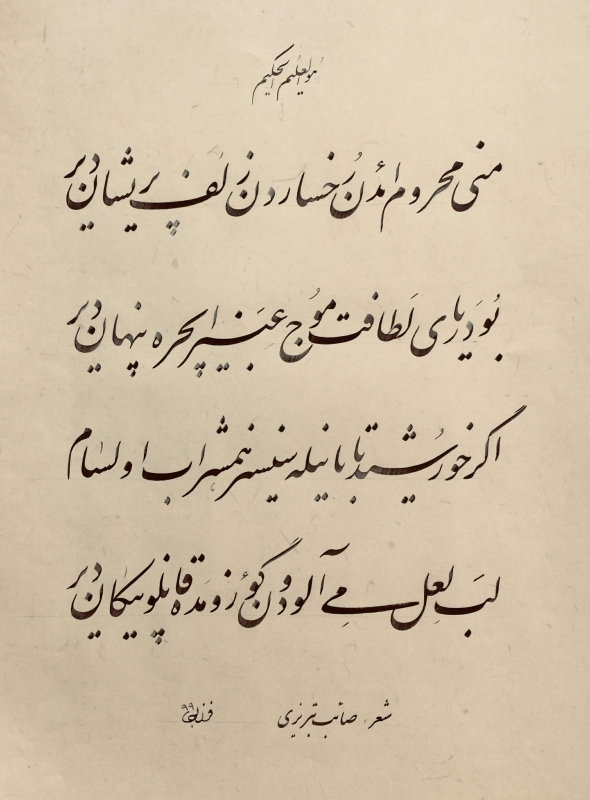 هو العلیم الحکیم
منی محروم ائدن رُخساردن زُلف پریشان دیر
بو دریای لَطافت موج عَنبر ایچره پنهان دیر
اگر خورشید تابانیله سنسیز همشراب اولسام
لَب لعلِ مِی آلودون گؤزومَده قانلو پیکان دیر
شعر، صائب تبریزی ۹۹